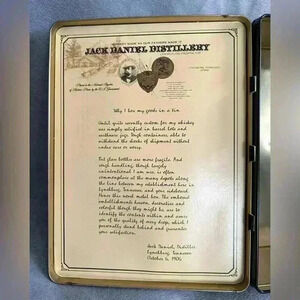 JACK DANIEL DISTILLERY
Placed in the National Register
of Historic Places by the U.S. Government
Why I box my goods in a tin
Until quite recently custom for my whiskey
was simply satisfied in barrel lots and
earthware jugs. Rough containers, able to
withstand the shocks of shipment without
undue care or worry.
But glass bottles are more fragile. And
rough handling, though largely
unintentional I am sure, is often
commonplace at the many depots along
the line between my establishment here in
Lynchburg, Tennessee, and your sideboard.
Hence this novel metal box. The embossed
embellishments hereon, decorative and
colorful though they might be, are to
identify the contents within and assure
you of the quality of every drop, which I
personally stand behind and guarantee
your satisfaction.
Jack Daniel, Distiller
Lynchburg, Tennessee
October 6, 1906